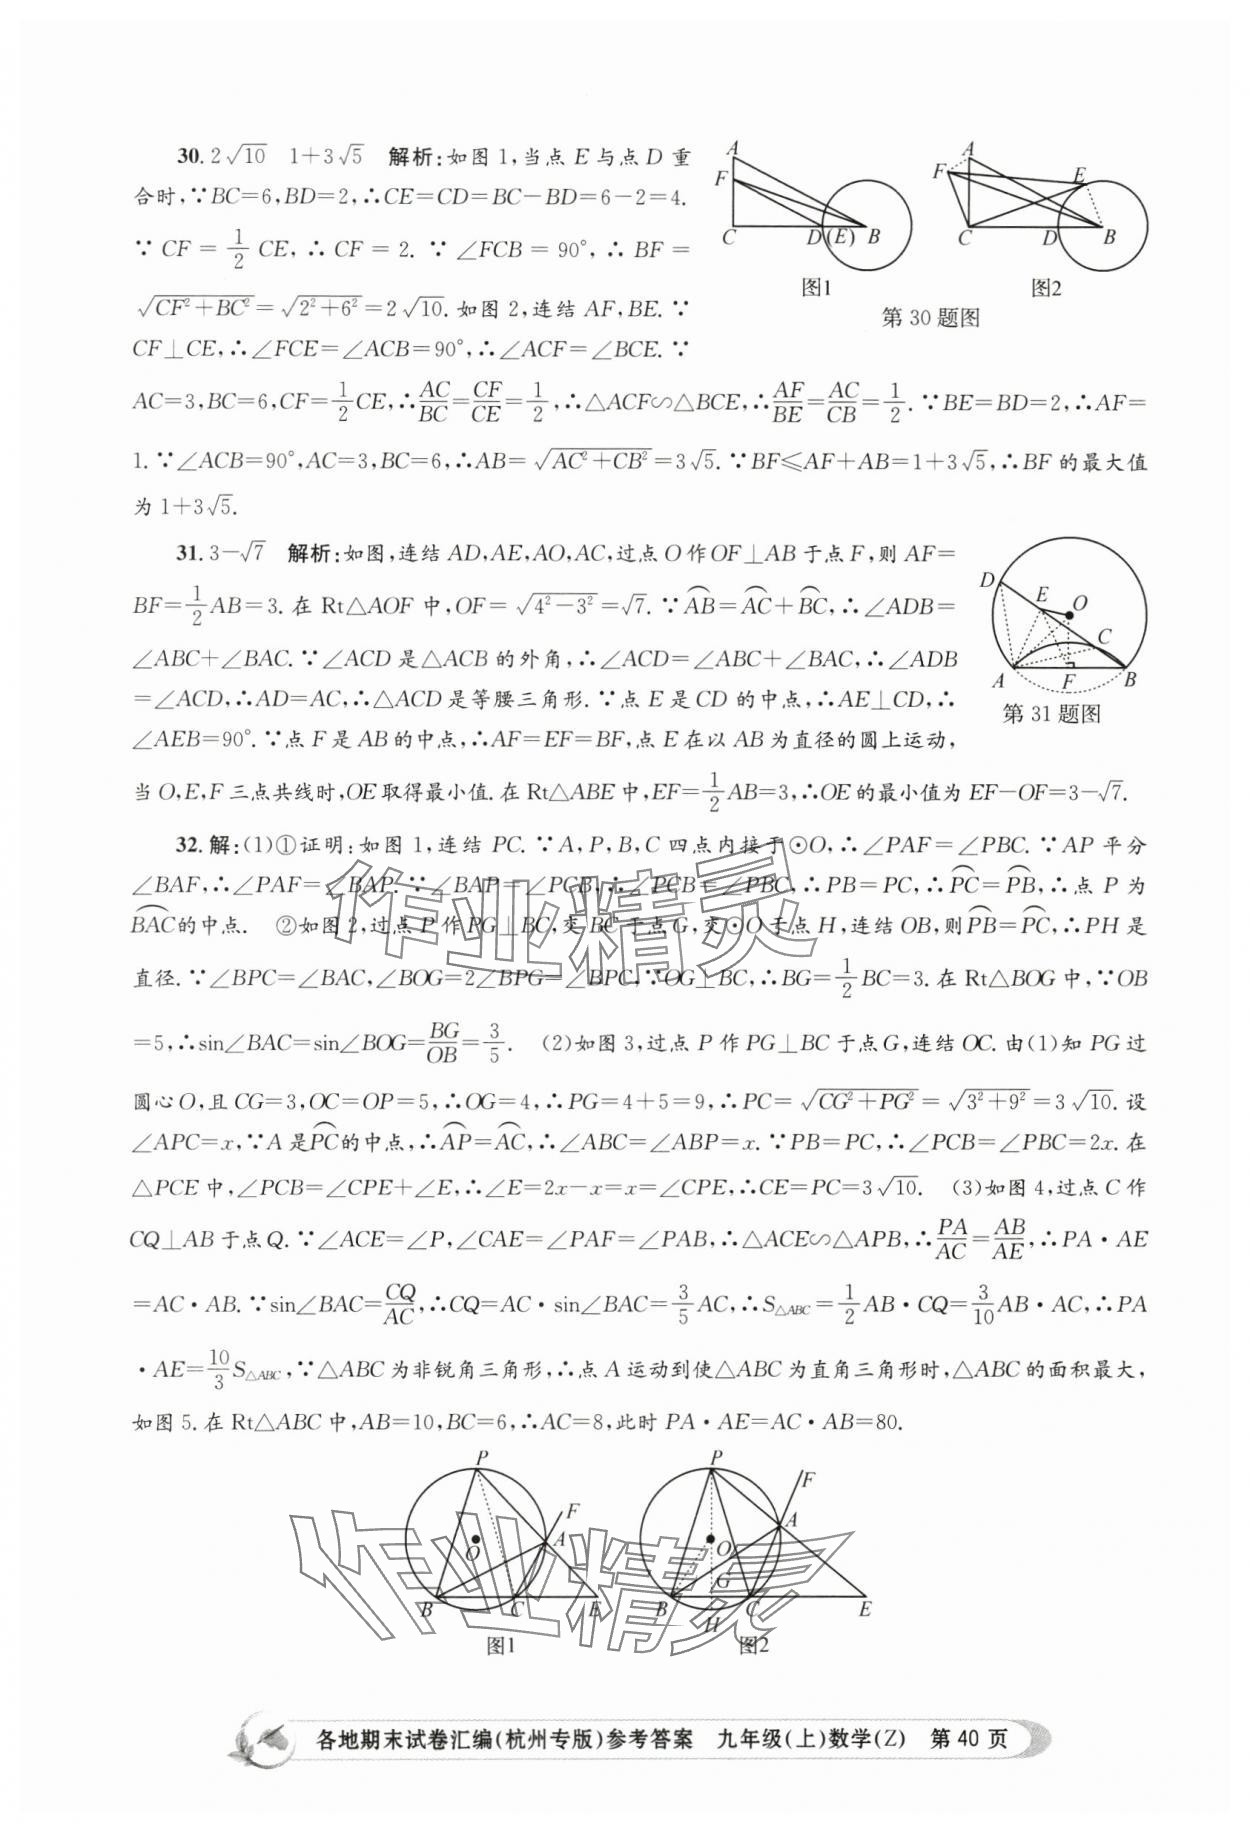 30. 2√10　1+3√5　解析:如图1,当点E与点D重
合时,∵BC=6,BD=2,∴CE=CD=BC-BD=6-2=4.
∵ CF = 1/2 CE, ∴ CF = 2. ∵ ∠FCB = 90°, ∴ BF =
√(CF²+BC²)=√(2²+6²)=2√10. 如图2,连结AF,BE. ∵
CF⊥CE,∴∠FCE=∠ACB=90°,∴∠ACF=∠BCE. ∵
AC=3,BC=6,CF=1/2CE,∴AC/BC=CF/CE=1/2,∴△ACF∽△BCE,∴AF/BE=AC/CB=1/2. ∵BE=BD=2,∴AF=
1. ∵∠ACB=90°,AC=3,BC=6,∴AB=√(AC²+CB²)=3√5. ∵BF≤AF+AB=1+3√5,∴BF的最大值
为1+3√5.
A
F
C
D(E)
B
图1
A
F
E
C
D
B
图2
第30题图
31. 3-√7　解析:如图,连结AD,AE,AO,AC,过点O作OF⊥AB于点F,则AF=
BF=1/2AB=3. 在Rt△AOF中,OF=√(4²-3²)=√7. ∵⌒AB=⌒AC+⌒BC,∴∠ADB=
∠ABC+∠BAC. ∵∠ACD是△ACB的外角,∴∠ACD=∠ABC+∠BAC,∴∠ADB
=∠ACD,∴AD=AC,∴△ACD是等腰三角形. ∵点E是CD的中点,∴AE⊥CD,∴
∠AEB=90°. ∵点F是AB的中点,∴AF=EF=BF,点E在以AB为直径的圆上运动,
当O,E,F三点共线时,OE取得最小值. 在Rt△ABE中,EF=1/2AB=3,∴OE的最小值为EF-OF=3-√7.
D
E
O
C
A
F
B
第31题图
32. 解:(1)①证明:如图1,连结PC. ∵A,P,B,C四点内接于⊙O,∴∠PAF=∠PBC. ∵AP平分
∠BAF,∴∠PAF=∠BAP. ∵∠BAP=∠PCB,∴∠PCB=∠PBC,∴PB=PC,∴⌒PC=⌒PB,∴点P为
⌒BAC的中点.　②如图2,过点P作PG⊥BC,交BC于点G,交⊙O于点H,连结OB,则⌒PB=⌒PC,∴PH是
直径. ∵∠BPC=∠BAC,∠BOG=2∠BPG=∠BPC,∵OG⊥BC,∴BG=1/2BC=3. 在Rt△BOG中,∵OB
=5,∴sin∠BAC=sin∠BOG=BG/OB=3/5.　(2)如图3,过点P作PG⊥BC于点G,连结OC. 由(1)知PG过
圆心O,且CG=3,OC=OP=5,∴OG=4,∴PG=4+5=9,∴PC=√(CG²+PG²)=√(3²+9²)=3√10. 设
∠APC=x,∵A是⌒PC的中点,∴⌒AP=⌒AC,∴∠ABC=∠ABP=x. ∵PB=PC,∴∠PCB=∠PBC=2x. 在
△PCE中,∠PCB=∠CPE+∠E,∴∠E=2x-x=x=∠CPE,∴CE=PC=3√10.　(3)如图4,过点C作
CQ⊥AB于点Q. ∵∠ACE=∠P,∠CAE=∠PAF=∠PAB,∴△ACE∽△APB,∴PA/AC=AB/AE,∴PA·AE
=AC·AB. ∵sin∠BAC=CQ/AC,∴CQ=AC·sin∠BAC=3/5AC,∴S△ABC=1/2AB·CQ=3/10AB·AC,∴PA
·AE=10/3S△ABC,∵△ABC为非锐角三角形,∴点A运动到使△ABC为直角三角形时,△ABC的面积最大,
如图5. 在Rt△ABC中,AB=10,BC=6,∴AC=8,此时PA·AE=AC·AB=80.
P
F
A
O
B
C
E
图1
P
F
A
O
G
B
C
E
H
图2
作业精灵
作业精灵
各地期末试卷汇编(杭州专版)参考答案　九年级(上)数学(Z)　第40页